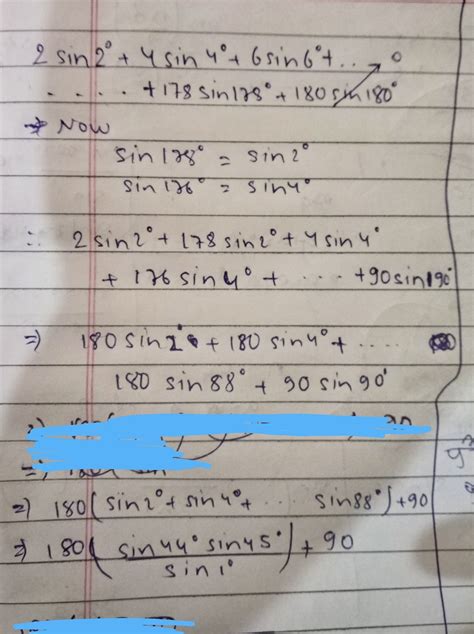 2 sin2° + 4 sin 4° + 6 sin 6° + ...
0
. . . . + 178 sin178° + 180 sin 180°
⇒ Now
sin 178° = sin 2°
sin 176° = sin 4°
∴ 2 sin2° + 178 sin2° + 4 sin 4°
+ 176 sin 4° + ..... + 90 sin 90°
⇒) 180 sin 2° + 180 sin 4° + .....
180 sin 88° + 90 sin 90°
⇒) 180 ( sin 2° + sin 4° + ... sin 88° ) + 90
⇒ 180 ( sin 44° sin 45° / sin 1° ) + 90